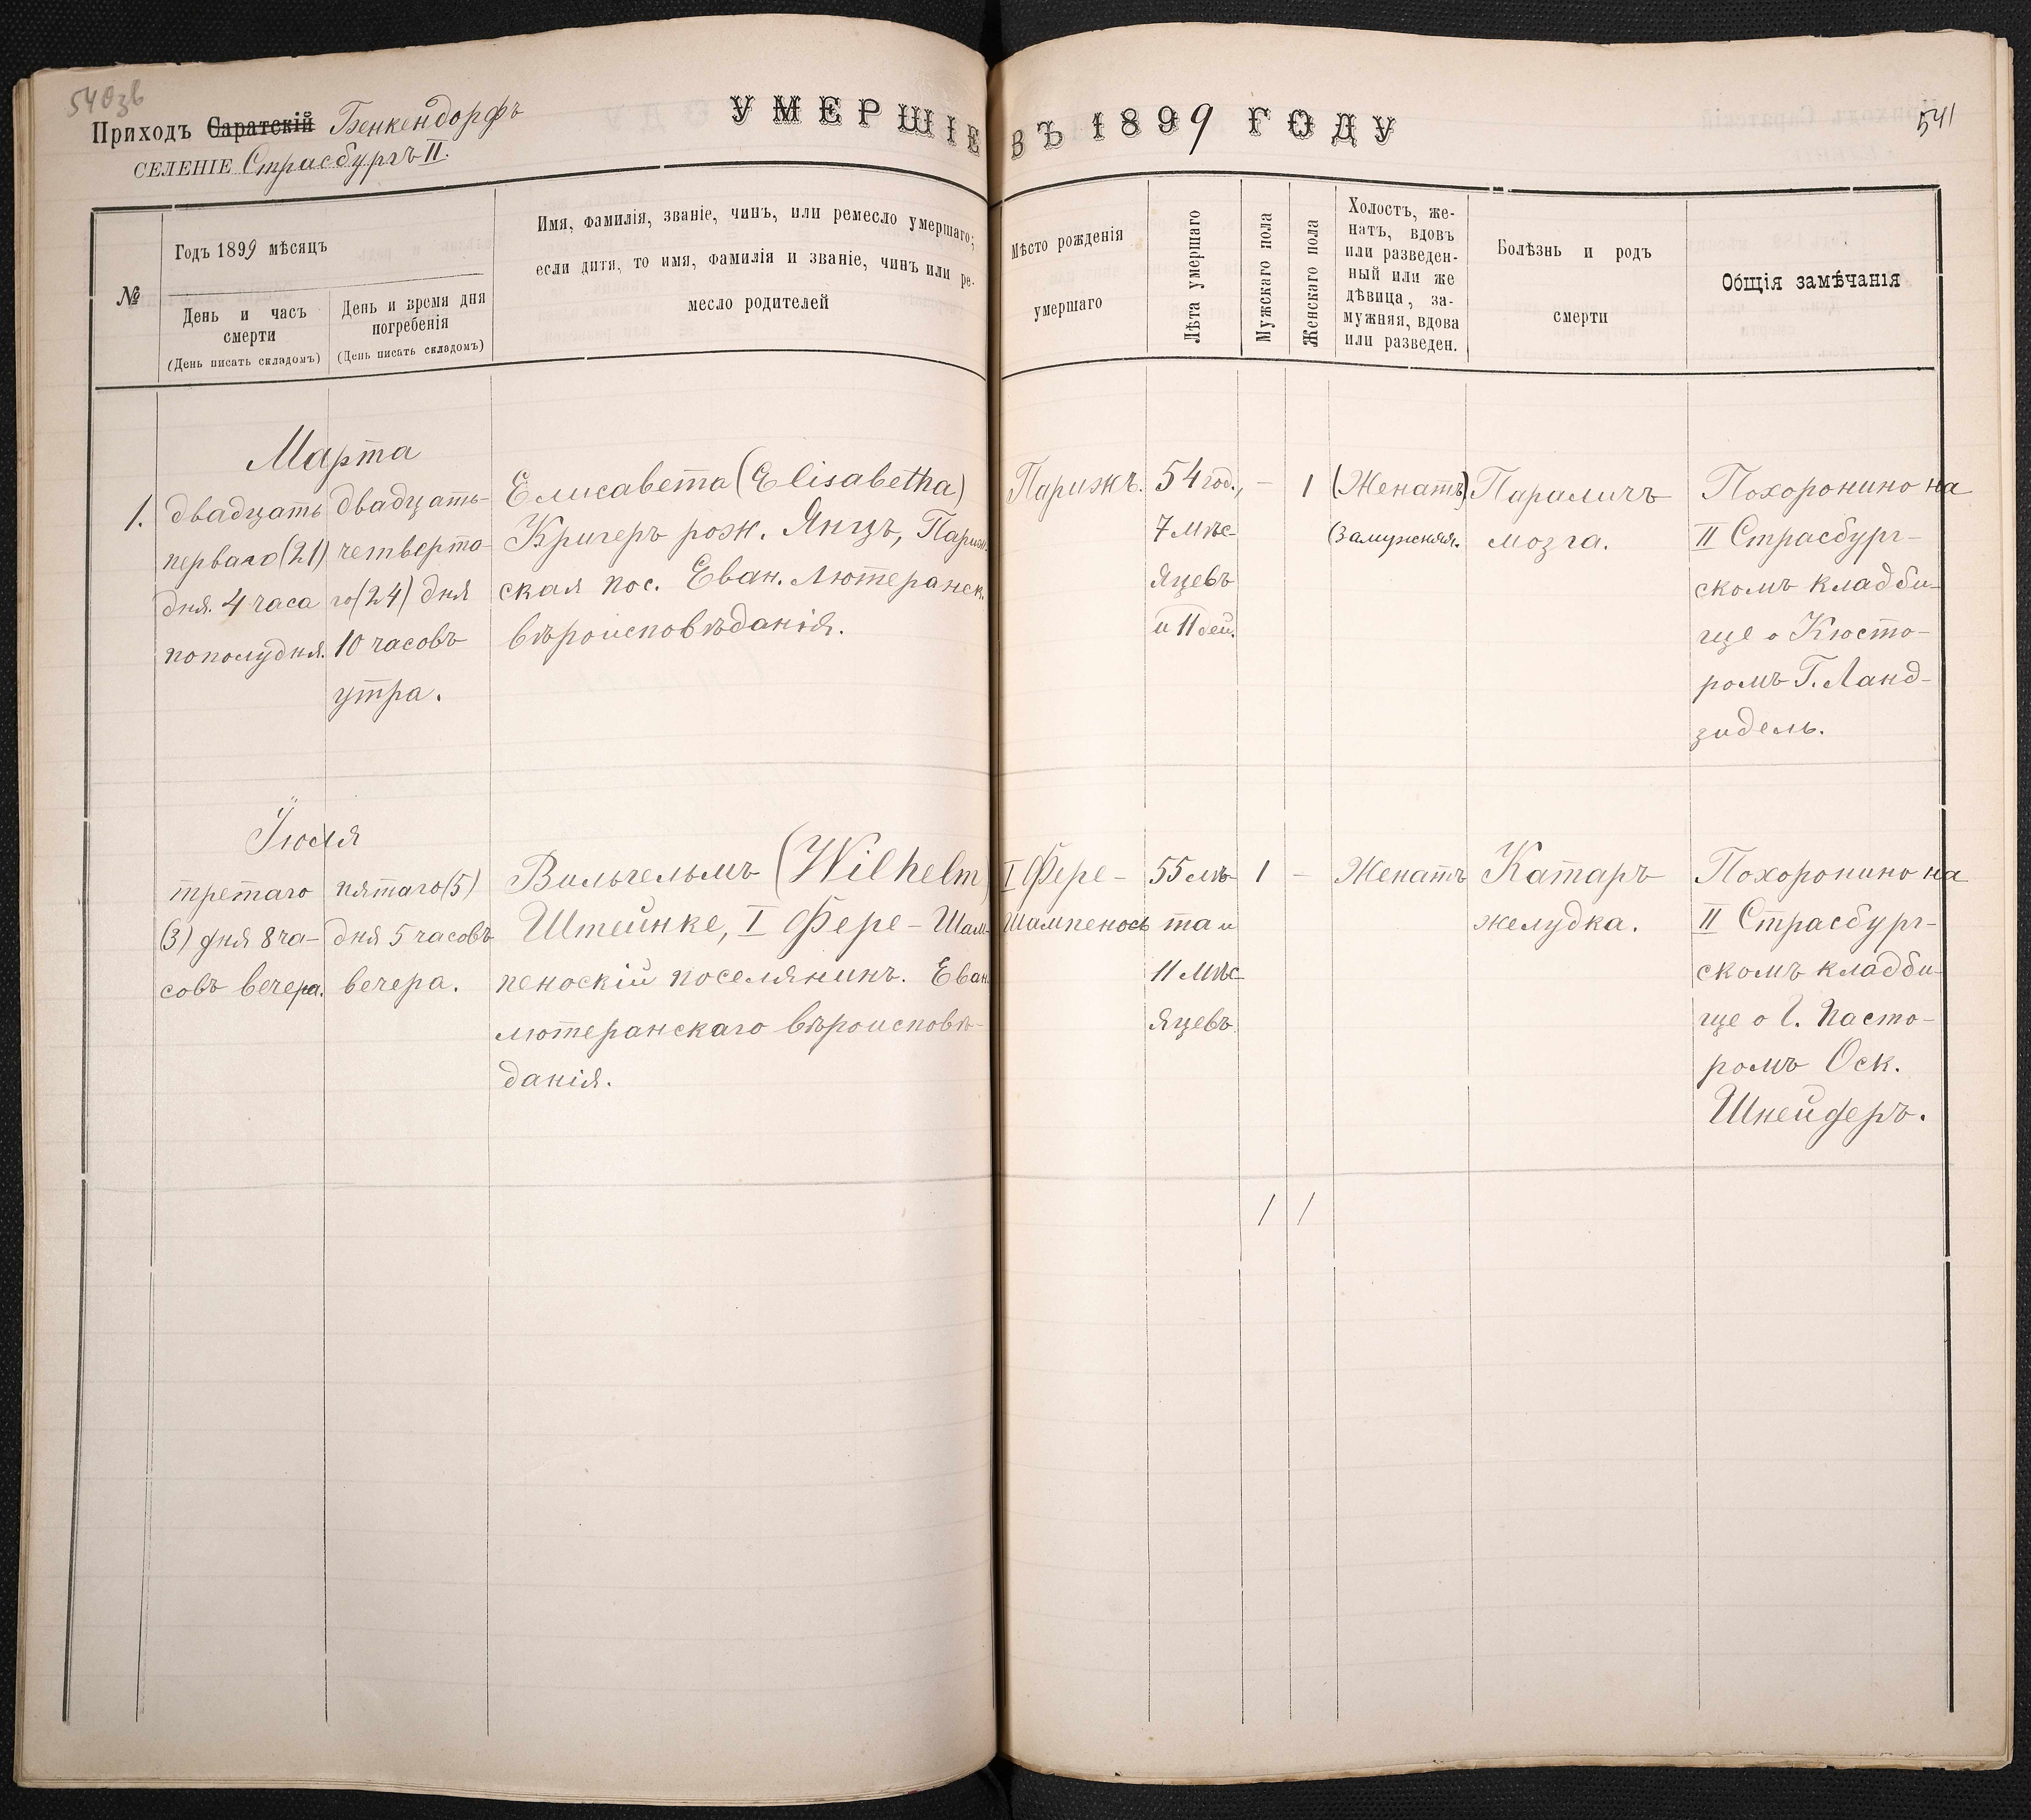 540зв
Приходъ Саратскій Бенкендорфъ
СЕЛЕНІЕ Страсбургъ II.
УМЕРШІЕ ВЪ 1899 ГОДУ
541
№
Годъ 1899 мѣсяцъ
День и часъ
смерти
(День писать складомъ)
День и время дня
погребенія
(День писать складомъ)
Имя, фамилія, званіе, чинъ, или ремесло умершаго;
если дитя, то имя, фамилія и званіе, чинъ или ре-
месло родителей
Мѣсто рожденія
умершаго
Лѣта умершаго
Мужскаго пола
Женскаго пола
Холостъ, же-
натъ, вдовъ
или разведен-
ный или же
дѣвица, за-
мужняя, вдова
или разведен.
Болѣзнь и родъ
смерти
Общія замѣчанія
Марта
1.
двадцать
перваго (21)
дня. 4 часа
пополудня.
двадцать-
четверта-
го (24) дня
10 часовъ
утра.
Елисавета (Elisabetha)
Кригеръ рож. Янцъ, Париж-
ская пос. Еван. Лютеранск.
вѣроисповѣданія.
Парижъ.
54 год.,
7 мѣс-
яцевъ
и 11 дей.
—
1
(Женатъ)
(Замужняя.
Параличъ
мозга.
Похоронино на
II Страсбург-
скомъ кладби-
ще о Кюсто-
ромъ Г. Ланд-
зидель.
Іюля
третаго
(3) дня 8 ча-
совъ вечера.
пятаго (5)
дня 5 часовъ
вечера.
Вильгельмъ (Wilhelm)
Штейнке, I Фере-Шам-
пеноскій поселянинъ. Еван.
лютеранскаго вѣроисповѣ-
данія.
I Фере-
Шампеносъ
55 лѣ-
та и
11 мѣс-
яцевъ
1
—
Женатъ
Катаръ
желудка.
Похоронино на
II Страсбург-
скомъ кладби-
ще о Г. Пасто-
ромъ Оск.
Шнейдеръ.
1 1